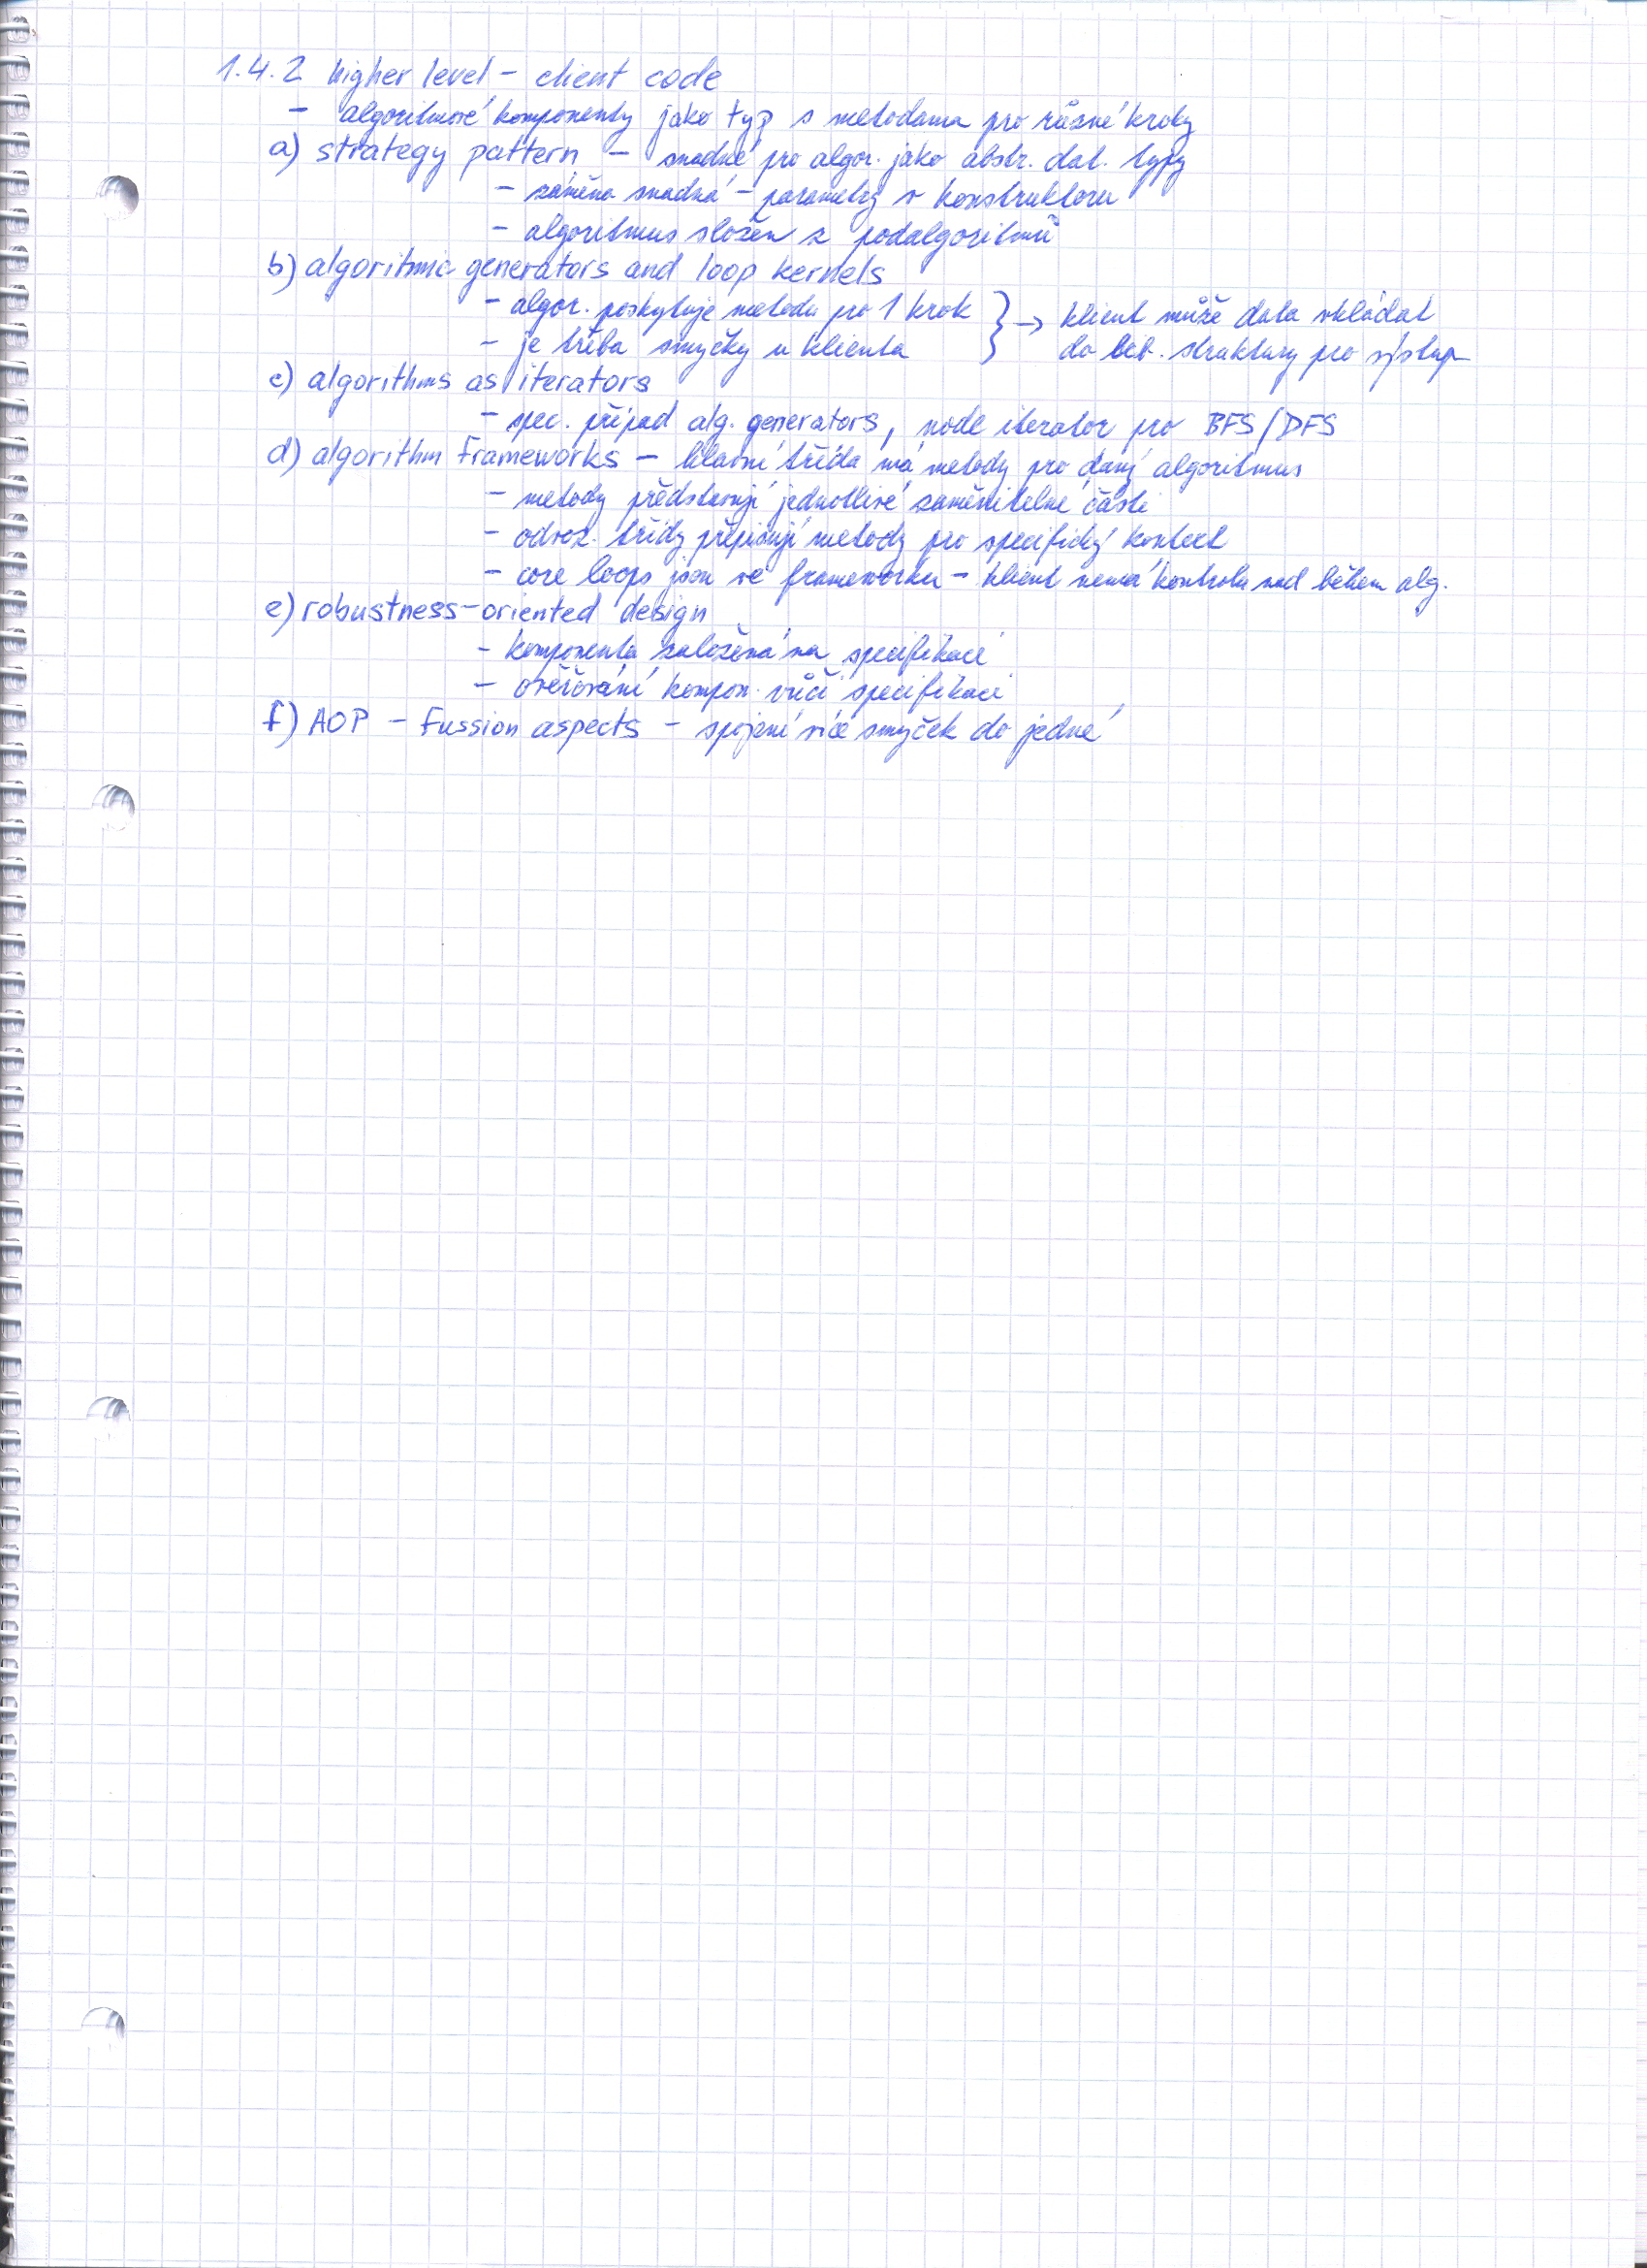 1.4.2 higher level - client code
- algoritmové komponenty jako typ s metodama pro různé kroky
a) strategy pattern - snadné pro algor. jako abstr. dat. typy
- záměna snadná - parametry v konstruktoru
- algoritmus složen z podalgoritmů
b) algoritmic generators and loop kernels
- algor. poskytuje metodu pro 1 krok } → klient může data vkládat
- je třeba smyčky u klienta do lib. struktury pro výstup
c) algorithms as iterators
- spec. případ alg. generators, node iterator pro BFS/DFS
d) algorithm frameworks - hlavní třída má metody pro daný algoritmus
- metody představují jednotlivé zaměnitelné části
- odvoz. třídy přepisují metody pro specifický kontext
- core loops jsou ve frameworku - klient nemá kontrolu nad během alg.
e) robustness-oriented design
- komponenta založená na specifikaci
- ověřování kompon. vůči specifikaci
f) AOP - Fussion aspects - spojení více smyček do jedné